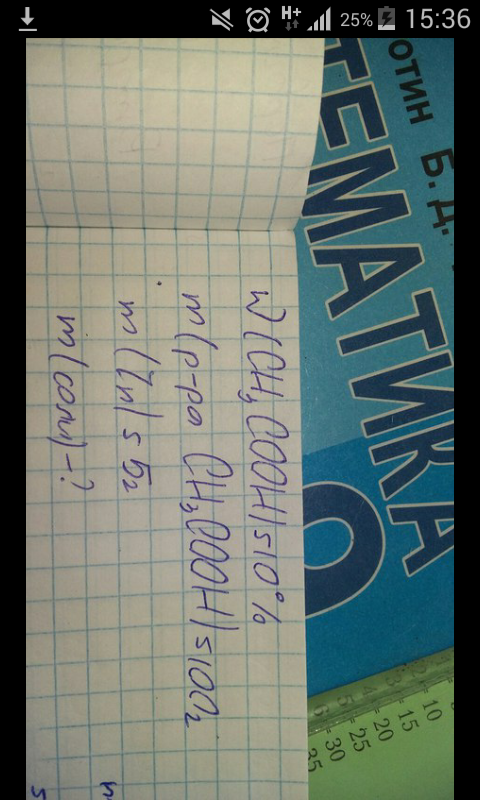 H+ 25% 15:36
ОТИН Б. Д.
ТЕМАТИКА
W(CH₃COOH)=10%
m(р-ра CH₃COOH)=100г
m(Zn)=5г
m(соли)-?
5 10 15 20 25 30 35